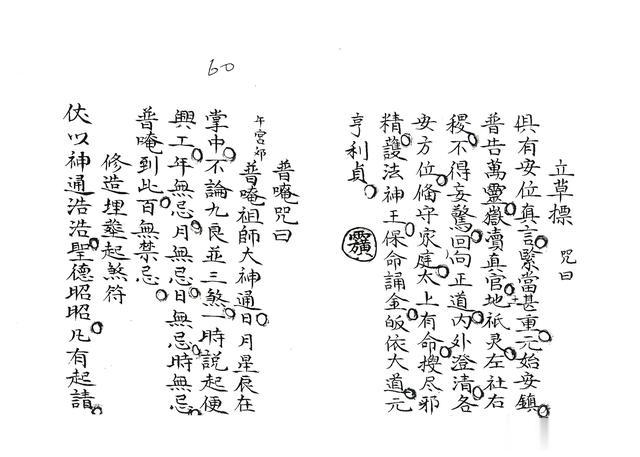 60
立草標 咒曰
俱有安位真言緊當甚重元始安鎮
普告萬靈嶽瀆真官地祇灵左社右
稷不得妄驚回向正道内外澄清各
安方位俻守家庭太上有命搜尽邪
精護法神王保命誦金皈依大道元
亨利貞
普唵咒曰
年宫邜 普唵祖師大神通日月星辰在
掌中不論九良並三煞一時説起便
興工年無忌月無忌日無忌時無忌
普唵到此百無禁忌
修造埋葬起煞符
伏以神通浩浩聖德昭昭凡有起請